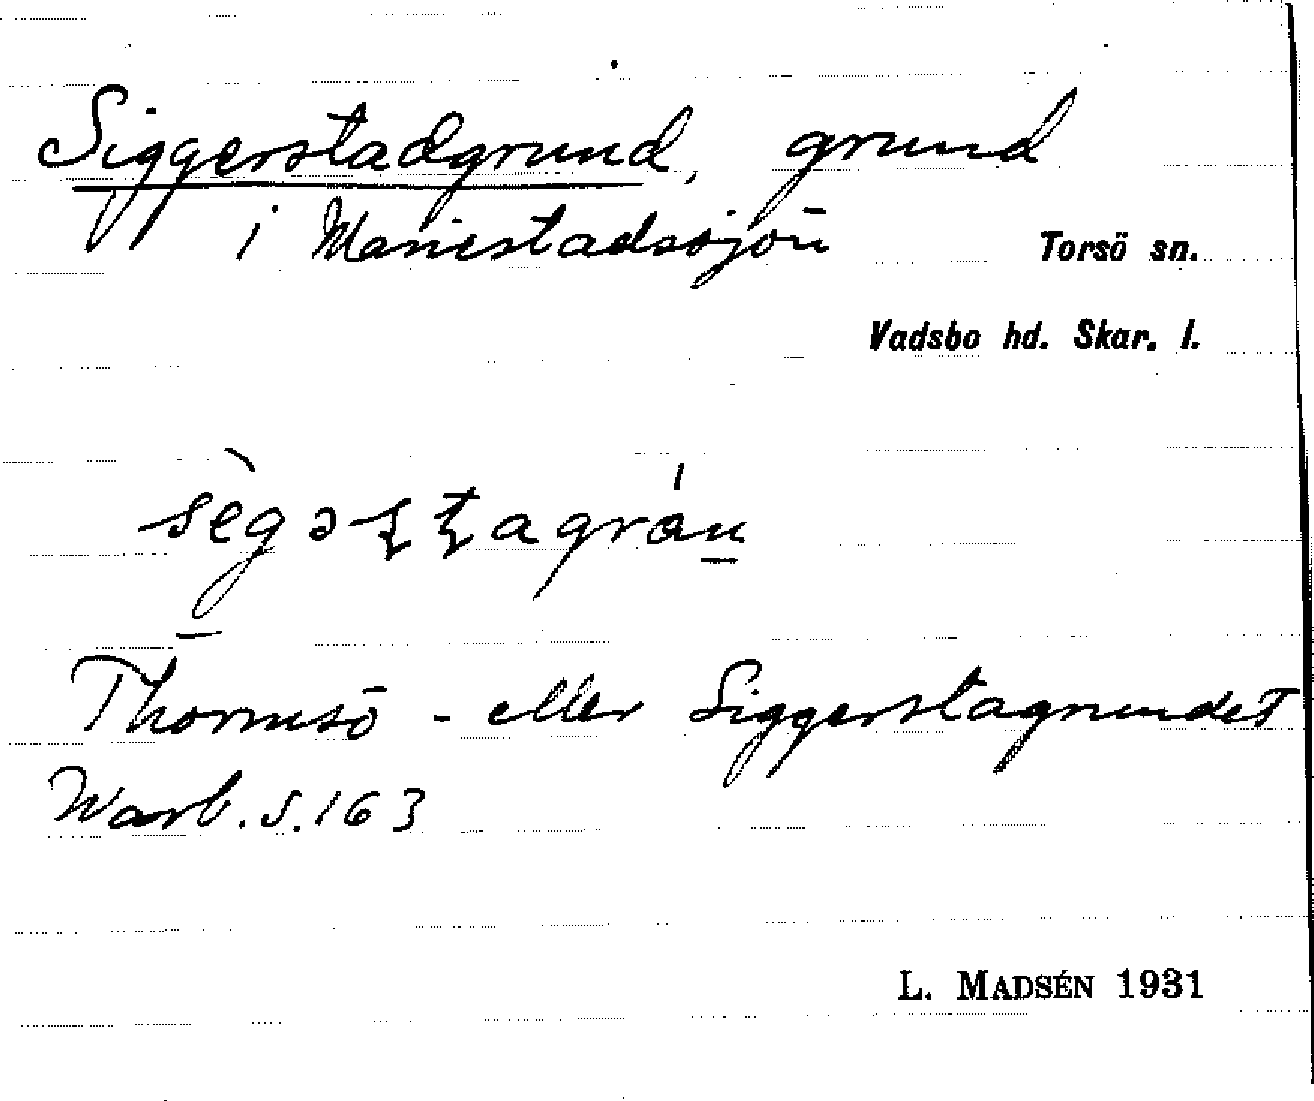 Siggerstadgrund, grund
i Mariestadssjön
Torsö sn.
Vadsbo hd. Skar. l.
Thormsö - eller Siggerstagrundet
Warb. S. 163
L. MADSÉN 1931